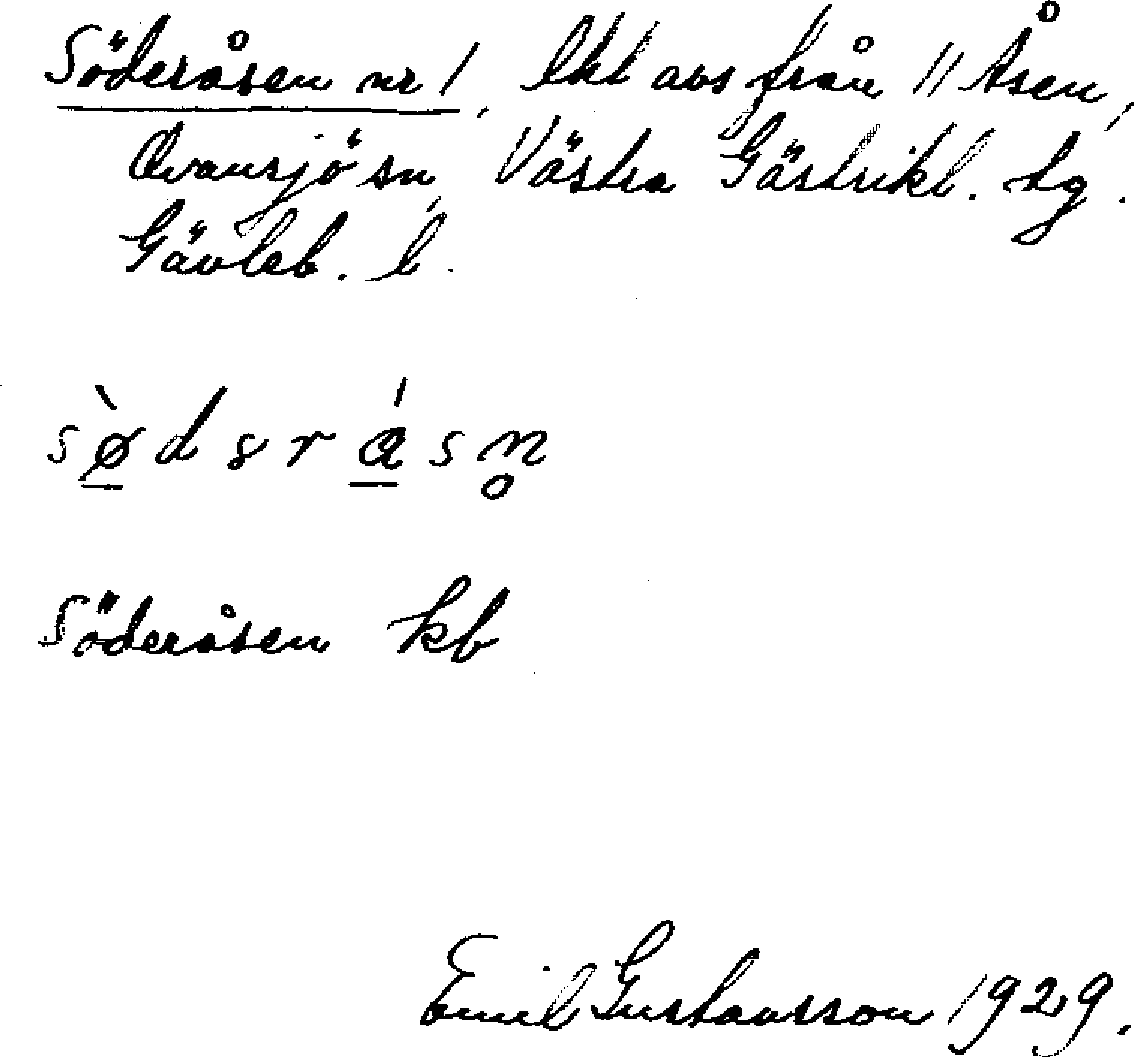 Söderåsen nr 1, lht avs från 11 Åsen,
Ovansjö sn, Västra Gästrikl. tg.
Gävleb. l.
sø̀dɘrása̱sn̥
Söderåsen kb
Emil Gustavsson 1929.